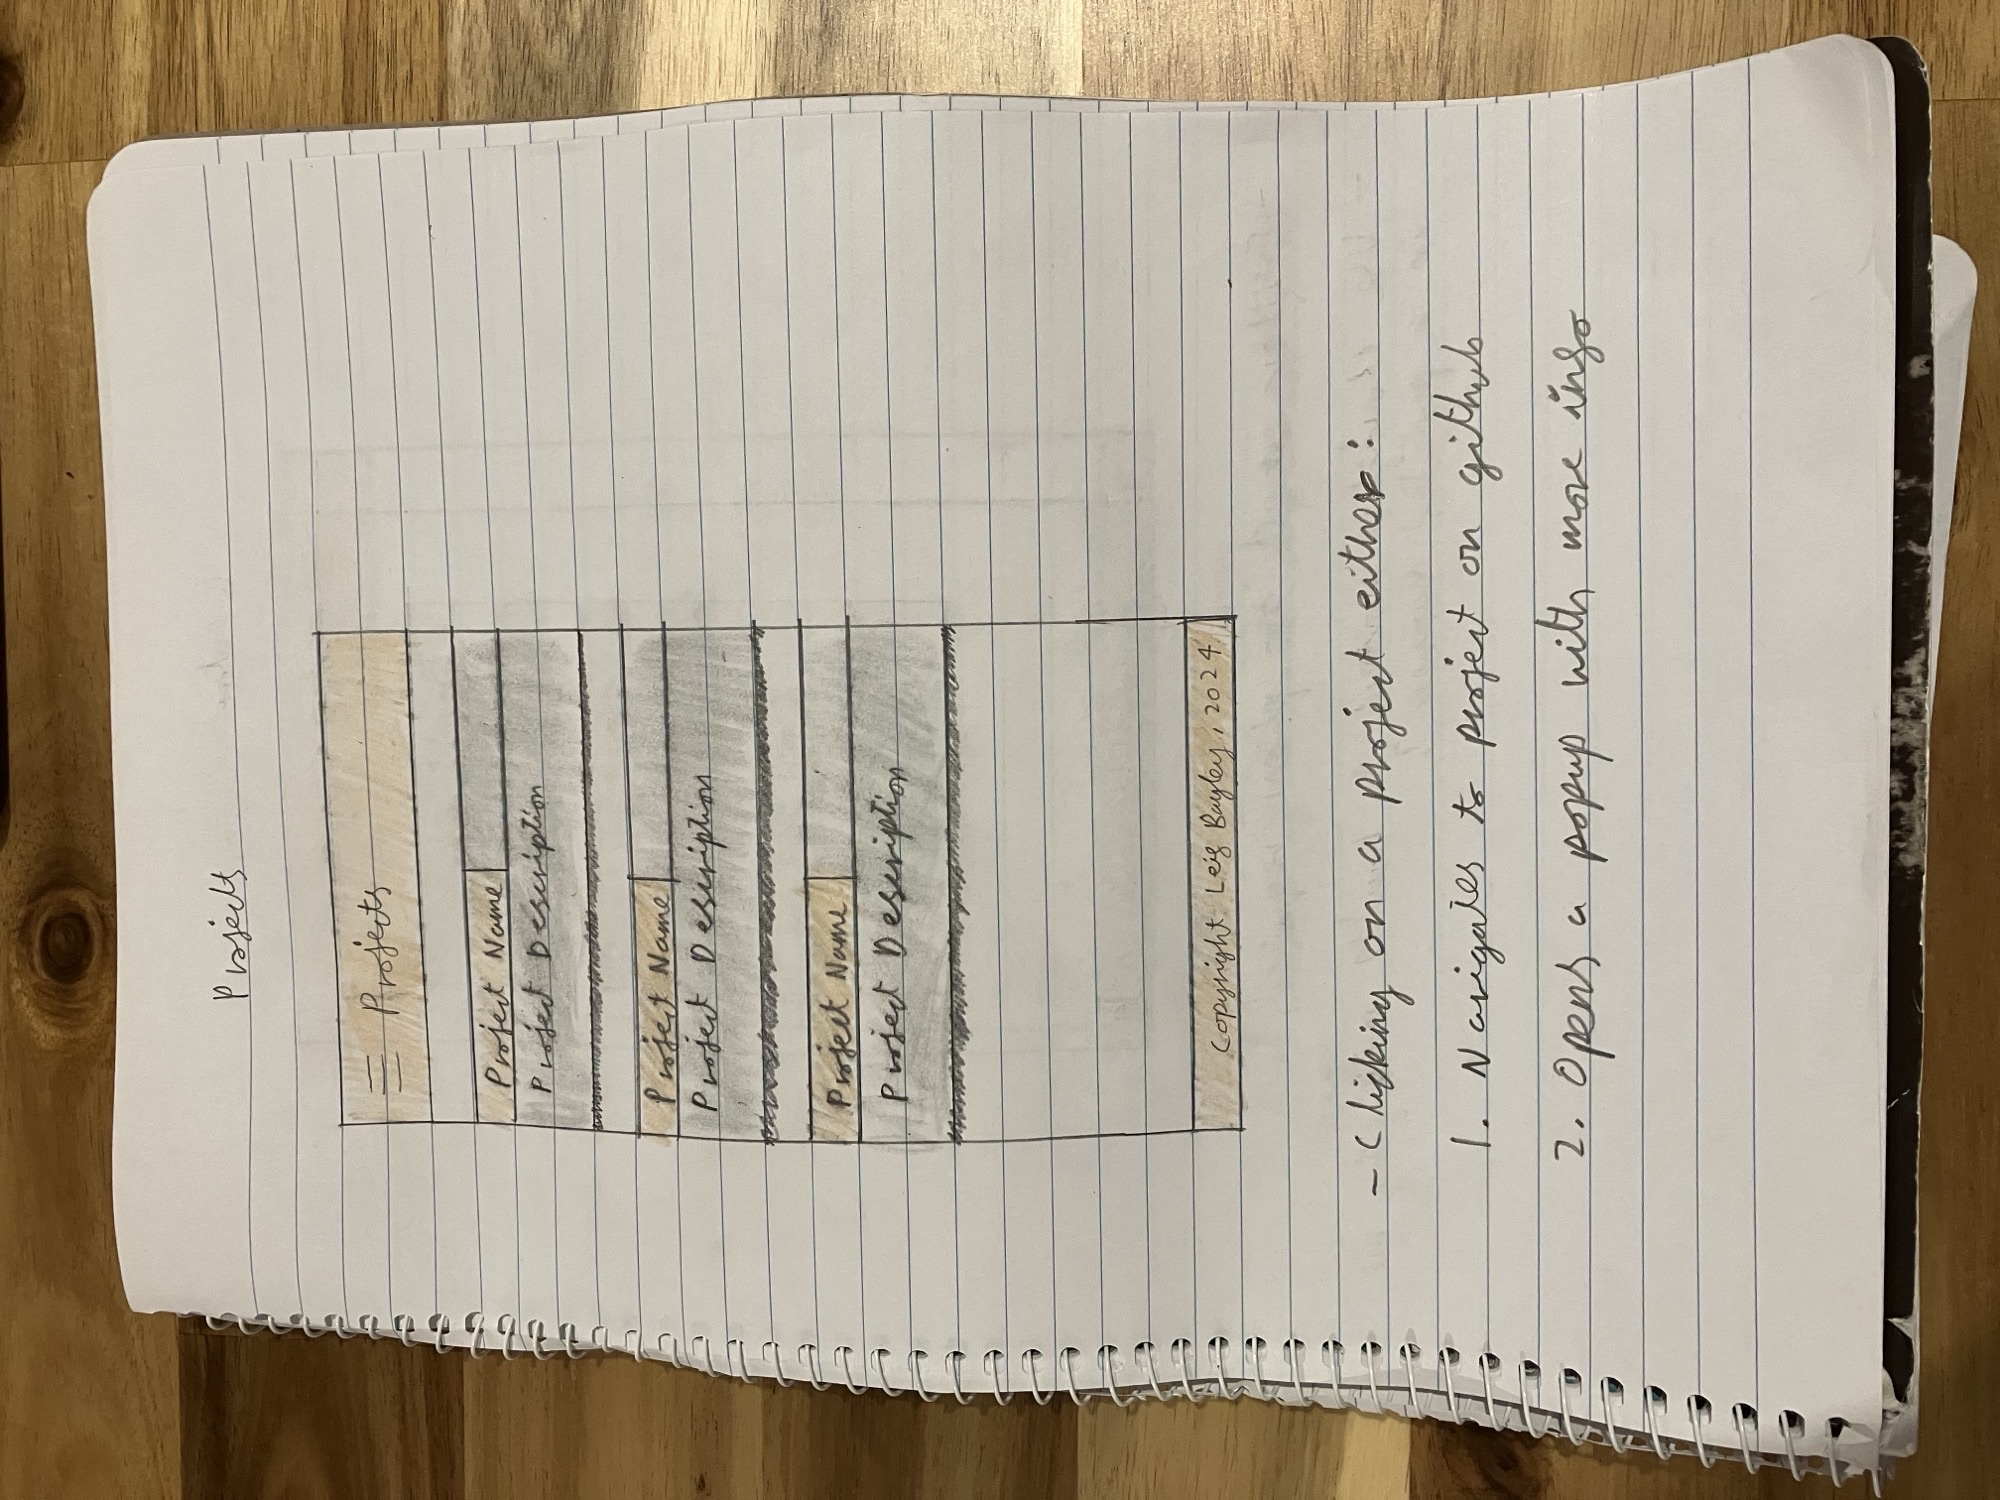 Projects
Projects
Project Name
Project Description
Project Name
Project Description
Project Name
Project Description
Copyright Leif Bayley, 2024
- Clicking on a project either:
1. Navigates to project on github
2. Opens a popup with more info